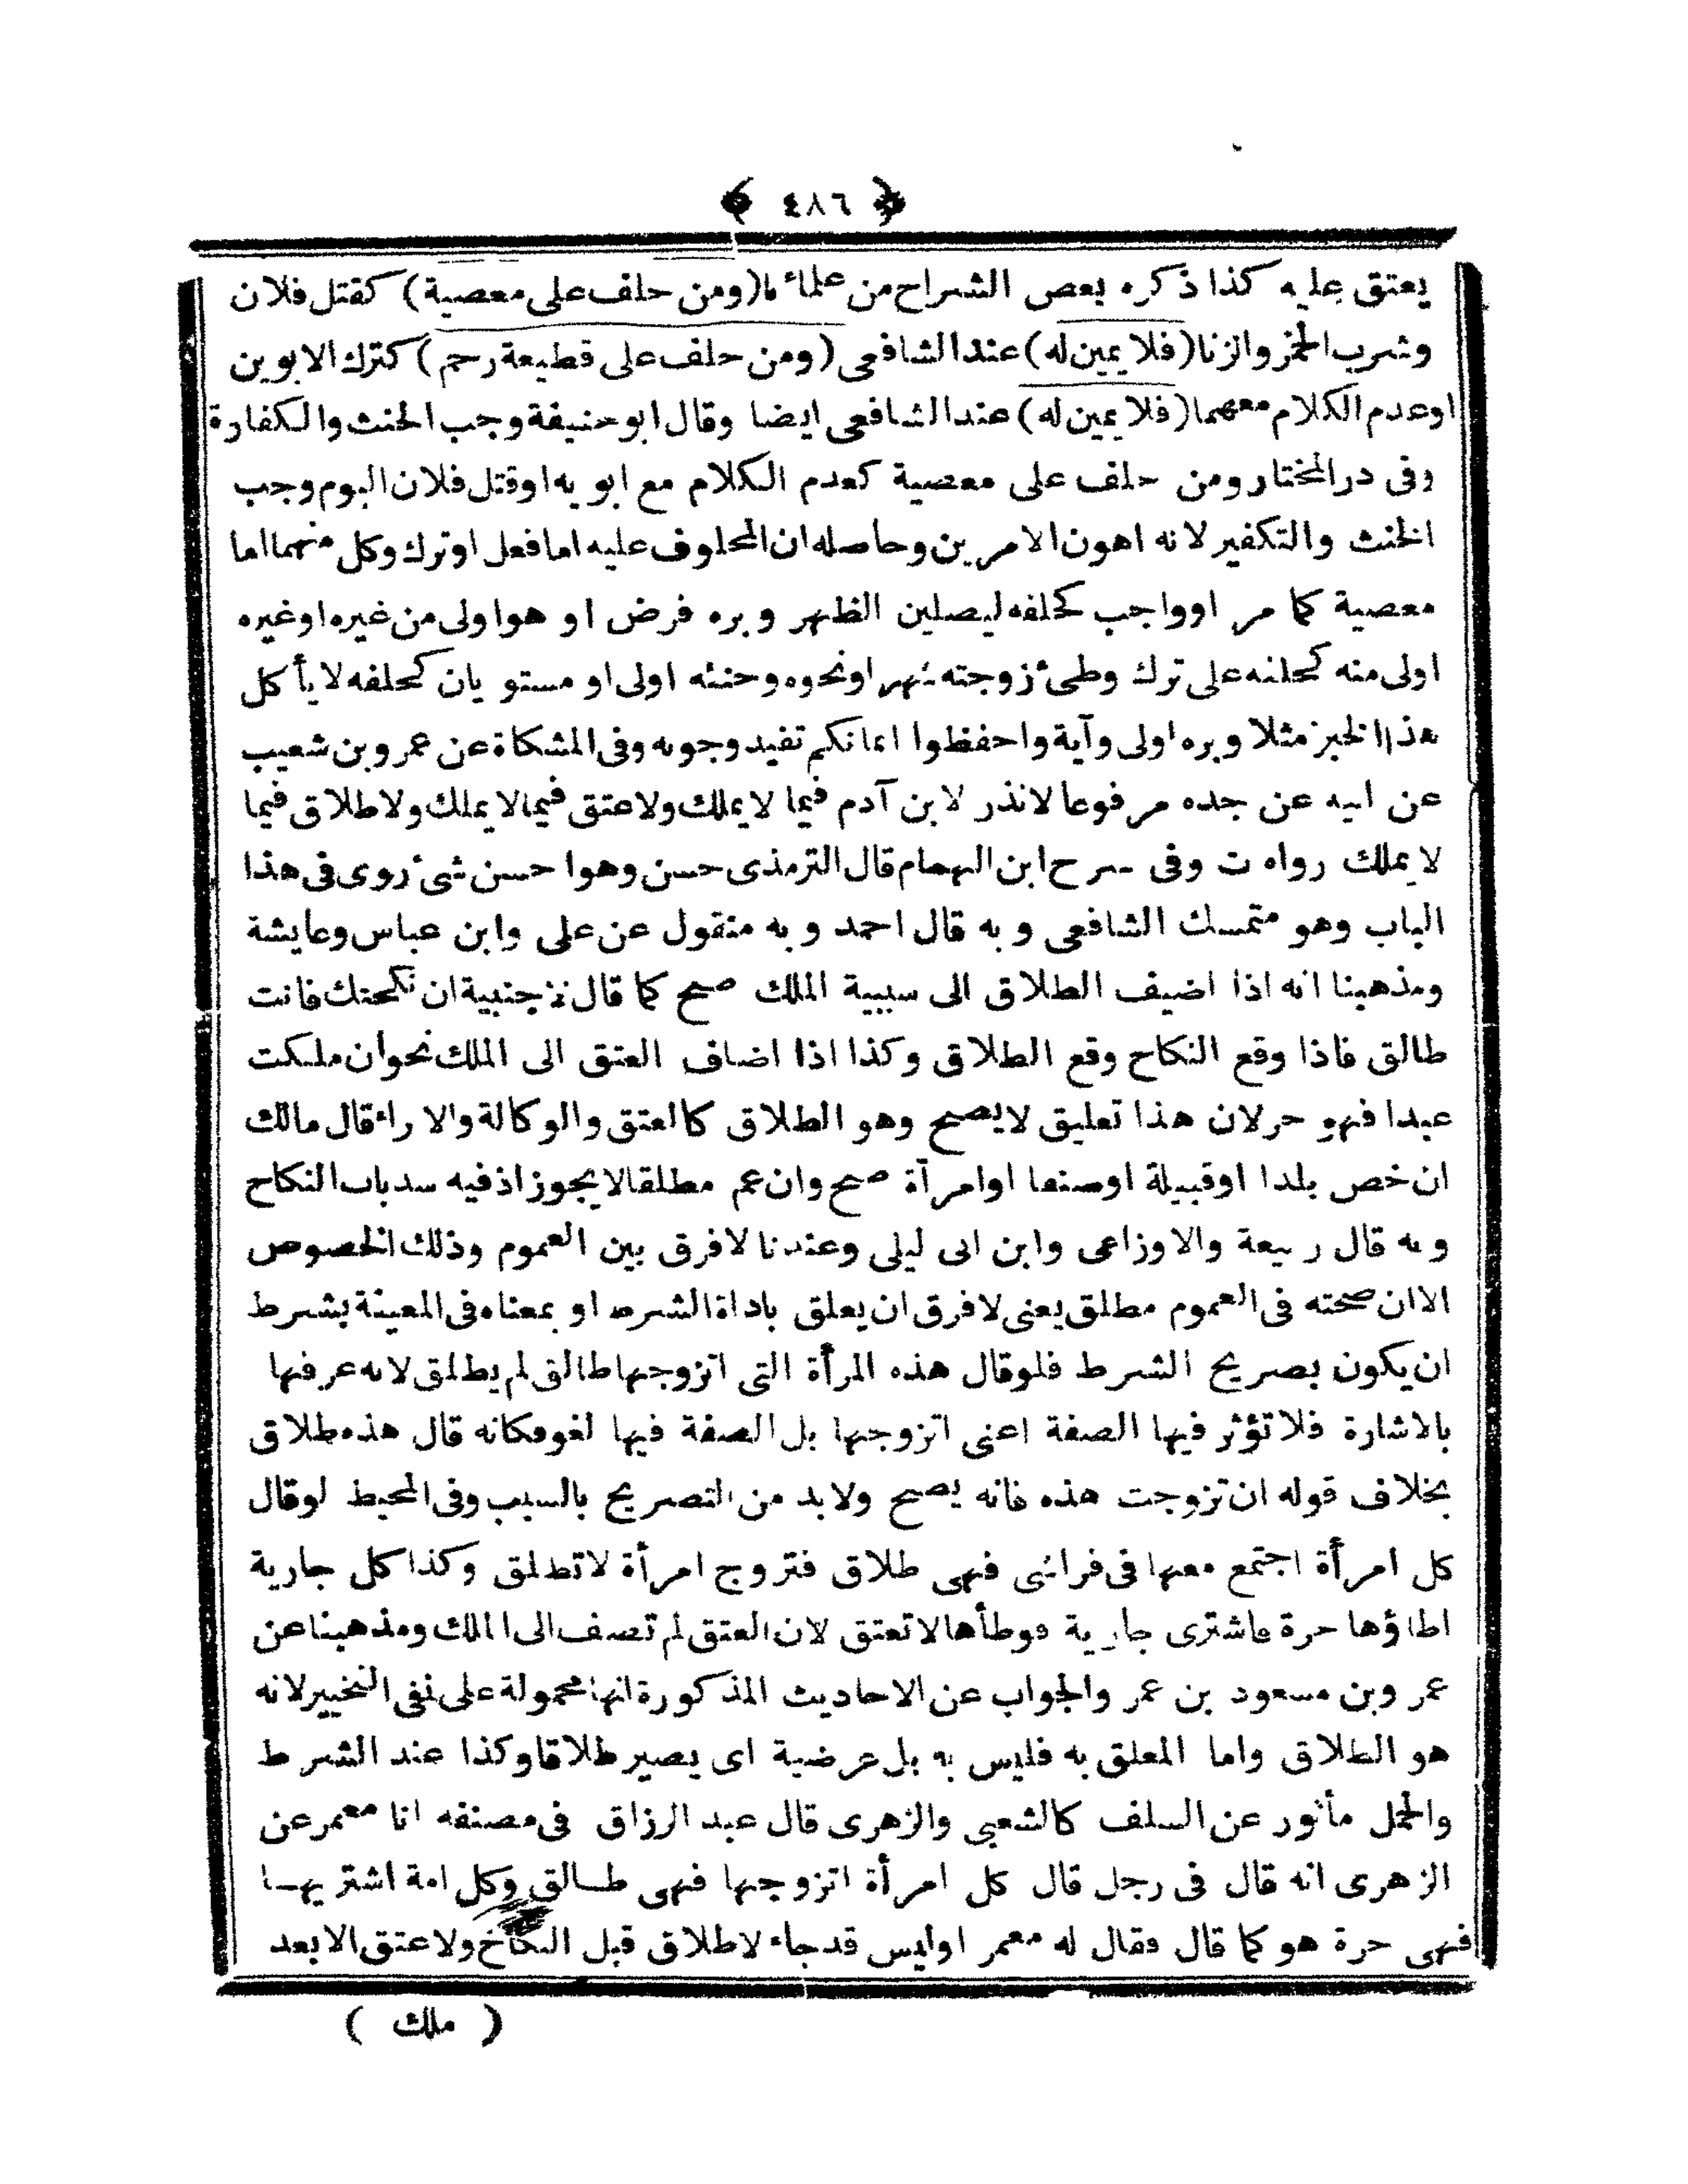 ﴿ ٤٨٦ ﴾
يعتق عليه كذا ذكره بعض الشراح من علمائنا (ومن حلف على معصية) كقتل فلان
وشرب الخمر والزنا (فلا يمين له) عند الشافعى (ومن حلف على قطيعة رحم) كترك الابوين
او عدم الكلام معهما (فلا يمين له) عند الشافعى ايضا وقال ابو حنيفة وجب الحنث والكفارة
وفى در المختار ومن حلف على معصية كعدم الكلام مع ابويه او قتل فلان اليوم وجب
الحنث والتكفير لانه اهون الامرين وحاصله ان المحلوف عليه اما فعل او ترك وكل منهما اما
معصية كما مر او واجب كحلفه ليصلين الظهر وبره فرض او هو اولى من غيره او غيره
اولى منه كحلفه على ترك وطئ زوجته شهرا ونحوه وحنثه اولى او مستويان كحلفه لا يأكل
هذا الخبز مثلا وبره اولى وآية واحفظوا ايمانكم تفيد وجوبه وفى المشكاة عن عمرو بن شعيب
عن ابيه عن جده مرفوعا لا نذر لابن آدم فيما لا يملك ولا عتق فيما لا يملك ولا طلاق فيما
لا يملك رواه ت وفى شرح ابن الهمام قال الترمذى حسن وهو احسن شئ روى فى هذا
الباب وهو متمسك الشافعى وبه قال احمد وبه منقول عن على وابن عباس وعايشة
ومذهبنا انه اذا اضيف الطلاق الى سببية الملك صح كما قال لاجنبية ان نكحتك فانت
طالق فاذا وقع النكاح وقع الطلاق وكذا اذا اضاف العتق الى الملك نحو ان ملكت
عبدا فهو حر لان هذا تعليق لا يصح وهو الطلاق كالعتق والوكالة والابراء قال مالك
ان خص بلدا او قبيلة او صنفا او امرآة صح وان عم مطلقا لا يجوز اذ فيه سد باب النكاح
وبه قال ربيعة والاوزاعى وابن ابى ليلى وعندنا لا فرق بين العموم وذلك الخصوص
الا ان صحته فى العموم مطلق يعنى لا فرق ان يعلق باداة الشرط او بمعناه فى المعينة بشرط
ان يكون بصريح الشرط فلو قال هذه المرأة التى اتزوجها طالق لم يطلق لانه عرفها
بالاشارة فلا تؤثر فيها الصفة اعنى اتزوجها بل الصفة فيها لغو فكانه قال هذه طلاق
بخلاف قوله ان تزوجت هذه فانه يصح ولا بد من التصريح بالسبب وفى المحيط لو قال
كل امرأة اجتمع معها فى فراشى فهى طلاق فتزوج امرأة لا تطلق وكذا كل جارية
اطاؤها حرة فاشترى جارية فوطأها لا تعتق لان العتق لم تصف الى الملك ومذهبنا عن
عمر وبن مسعود بن عمر والجواب عن الاحاديث المذكورة انها محمولة على نفى التخيير لانه
هو الطلاق واما المعلق به فليس به بل عرضية اى يصير طلاقا وكذا عند الشرط
والحمل مأثور عن السلف كالشعبى والزهرى قال عبد الرزاق فى مصنفه انا معمر عن
الزهرى انه قال فى رجل قال كل امرأة اتزوجها فهى طالق وكل امة اشتريها
فهى حرة هو كما قال فقال له معمر اوليس قد جاء لا طلاق قبل النكاح ولا عتق الا بعد
( ملك )